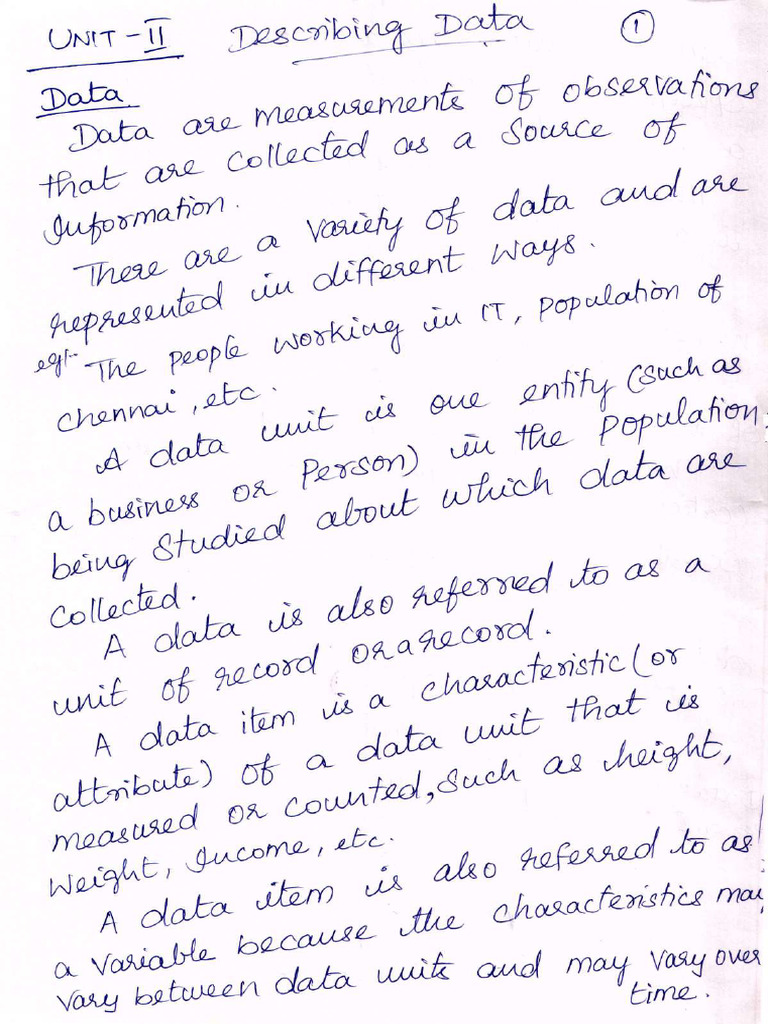 UNIT - II Describing Data 1
Data
Data are measurements of observations
that are collected as a source of
Information.
There are a variety of data and are
represented in different ways.
eg:- The people working in IT, population of
Chennai, etc.
A data unit is one entity (such as
a business or Person) in the population
being studied about which data are
Collected.
A data is also referred to as a
unit of record or a record.
A data item is a characteristic (or
attribute) of a data unit that is
measured or counted, such as height,
Weight, Income, etc.
A data item is also referred to as
a variable because the characteristics may
vary between data units and may vary over
time.